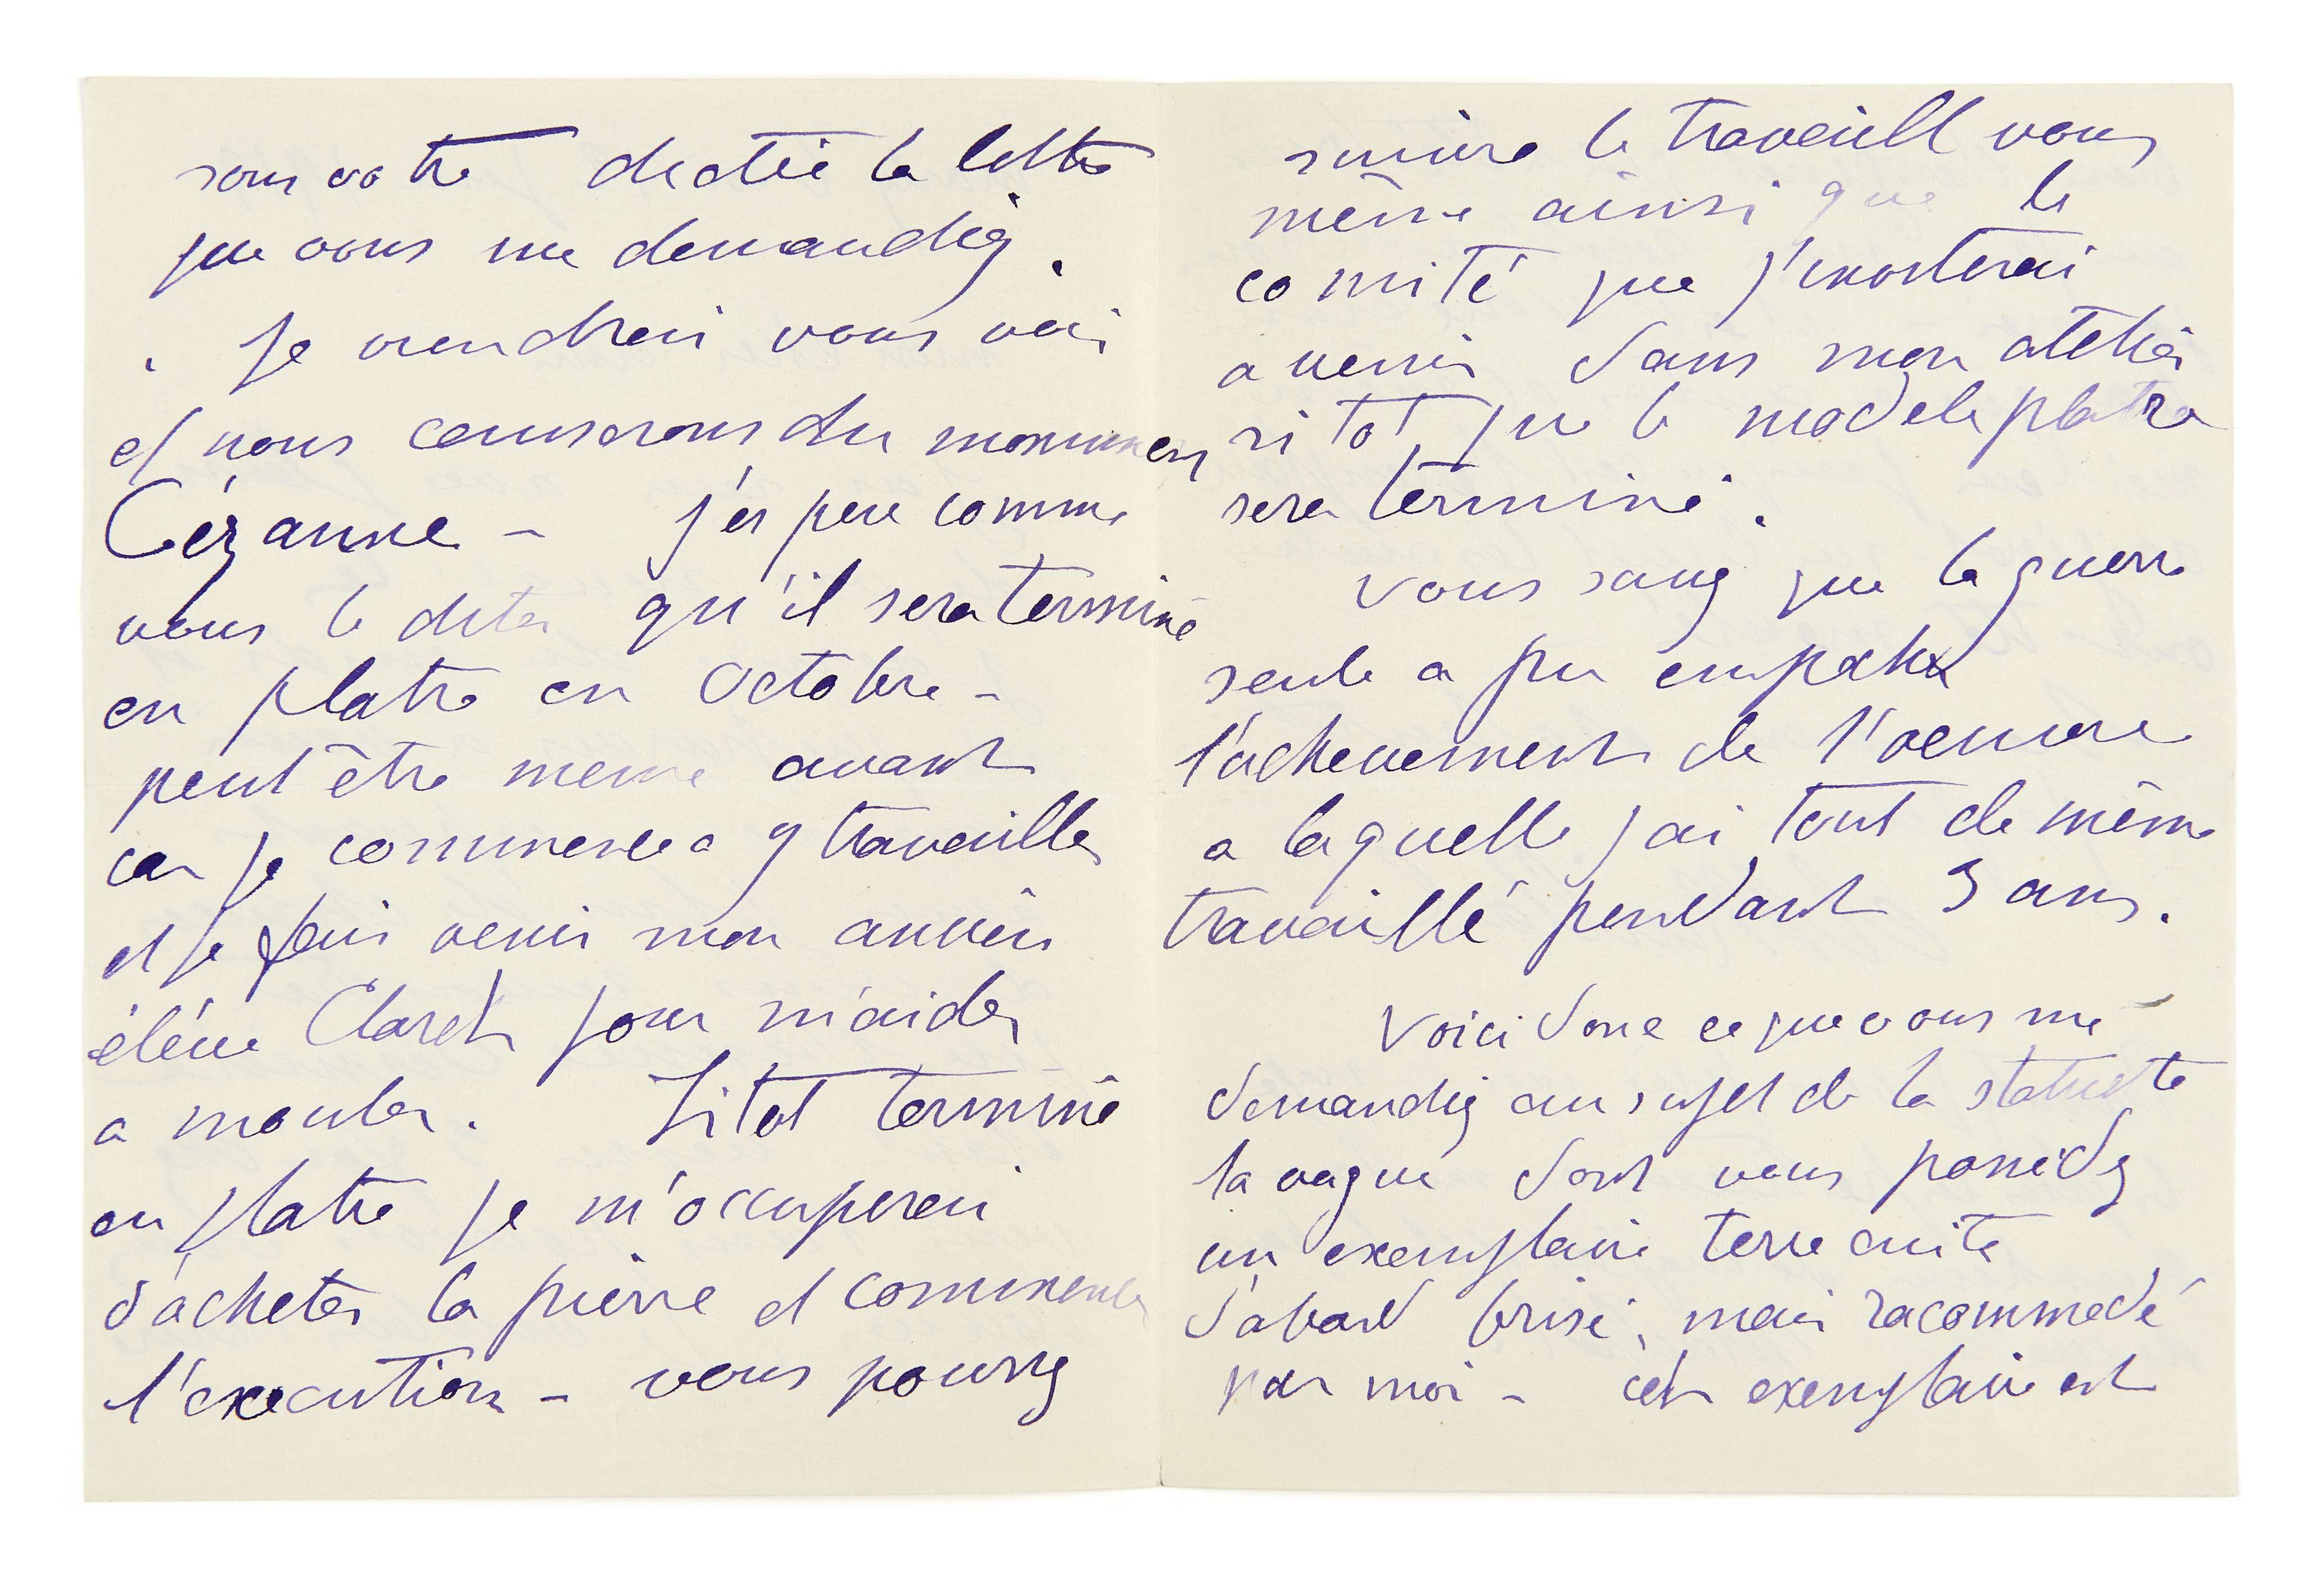 sous votre dictée la lettre
que vous me demandiez.
. Je viendrai vous voir
et nous causerons du monument
Cézanne – j'espere comme
vous le dites qu'il sera terminé
en platre en Octobre –
peut être meme avant
car je commence a y travailler
et je fais venir mon ancien
élève Claret pour m'aider
a mouler. Sitot terminé
en platre je m'occuperai
d'acheter la pierre et commencer
l'execution – vous pourrez
suivre le travaill vous
même ainsi que le
comité que j'inviterai
a venir dans mon atelier
sitot que le modele platre
sera terminé.
Vous savez que la guerre
seule a pu empecher
l'achevement de l'oeuvre
a laquelle j'ai tout de même
travaillé pendant 3 ans.
Voici donc ce que vous me
demandiez au sujet de la statuette
la vague dont vous possedez
un exemplaire terre cuite
d'abord brisé, mais racommodé
par moi – cet exemplaire est